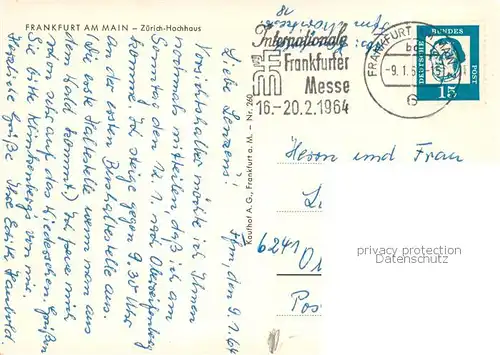 FRANKFURT AM MAIN – Zürich-Hochhaus
Ffm, den 9.1.64
Liebe Lenzens!
Vorsichtshalber möchte ich Ihnen
nochmals mitteilen, daß ich am
Sonntag den 12.1. nach Oberreifenberg
komme. Ich steige gegen 9.30 Uhr
an der ersten Bushaltestelle aus.
(Die erste Haltestelle, wenn man aus
dem Wald kommt) Ich freue mich
schon sehr auf das Wiedersehen. Grüßen
Sie bitte von mir.
Herzliche Grüße Ihre Edith
Kaufhof A.G., Frankfurt a. M. – Nr. 240
Internationale
Frankfurter
Messe
16.-20.2.1964
FRANKFURT
bd
-9.1.6
6
DEUTSCHE BUNDESPOST
15
Herrn und Frau
6241
Pos
privacy protection
VERORDNUNG (EU)